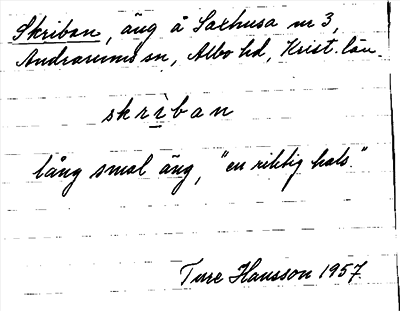 Skriban, äng å Saxhusa nr 3,
Andrarums sn, Albo hd, Krist. län
skrìban
lång smal äng, "en riktig hals."
Ture Hansson 1957.